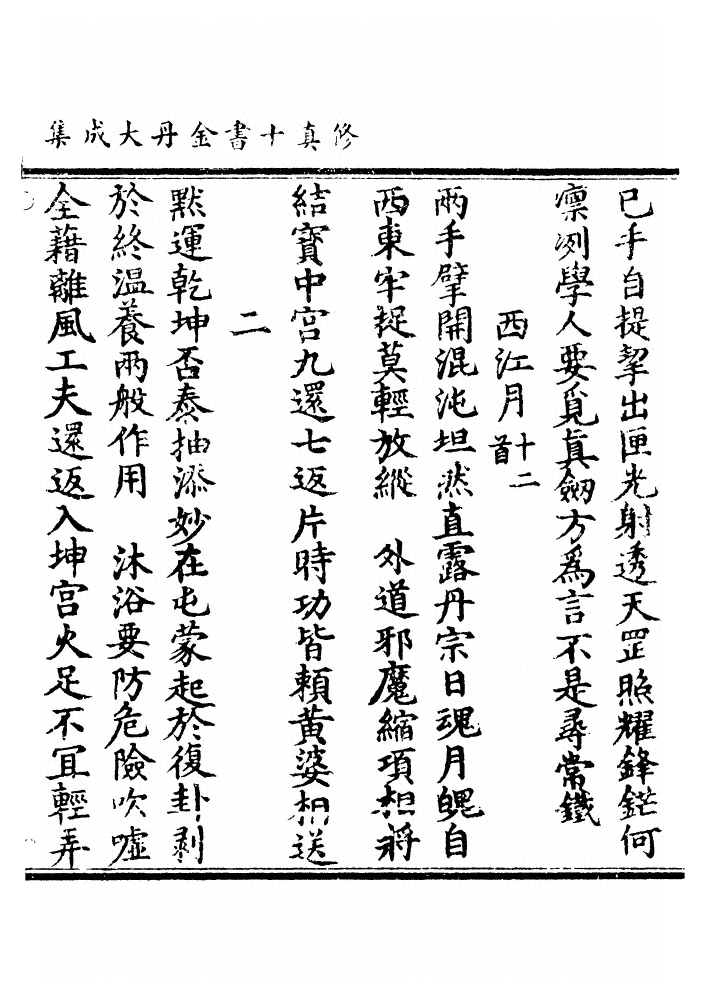 修真十書金丹大成集
已手自提挈出匣光射透天罡照耀鋒鋩何
凛冽學人要覓眞劔方爲言不是尋常鐵
西江月十二首
兩手擘開混沌坦然直露丹宗日魂月魄自
西東牢捉莫輕放縱　外道邪魔縮項相將
結寳中宮九還七返片時功皆賴黃婆相送
二
默運乾坤否泰抽添妙在屯蒙起於復卦剥
於終温養兩般作用　沐浴要防危險吹噓
全藉離風工夫還返入坤宮火足不冝輕弄